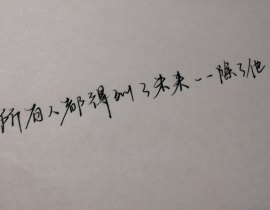 所有人都得到了未来——除了他